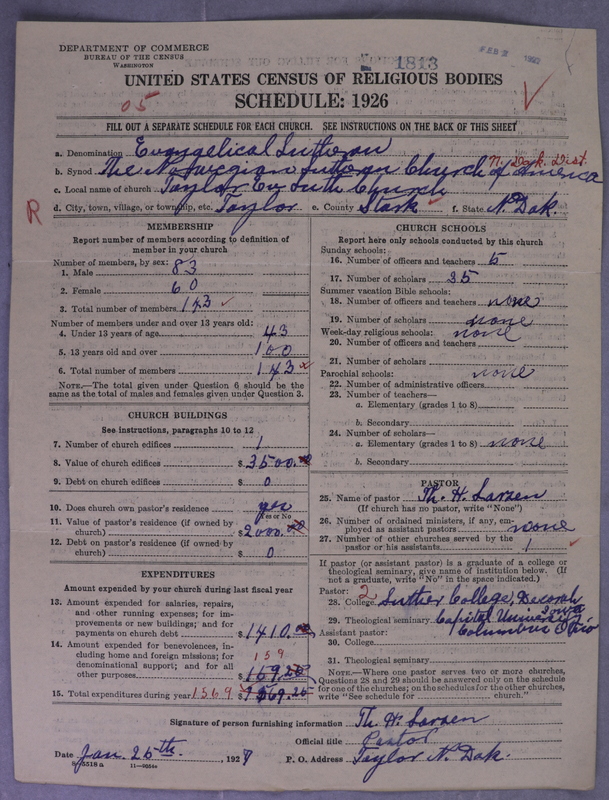 DEPARTMENT OF COMMERCE
BUREAU OF THE CENSUS
WASHINGTON
1813
FEB 2 1927
UNITED STATES CENSUS OF RELIGIOUS BODIES
05
SCHEDULE: 1926
FILL OUT A SEPARATE SCHEDULE FOR EACH CHURCH. SEE INSTRUCTIONS ON THE BACK OF THIS SHEET
a. Denomination Evangelical Lutheran
N. Dak. Dist.
b. Synod The Norwegian Lutheran Church of America
c. Local name of church Taylor Ev Luth Church
R
d. City, town, village, or township, etc. Taylor e. County Stark f. State N. Dak.
MEMBERSHIP
Report number of members according to definition of
member in your church
Number of members, by sex:
1. Male 83
2. Female 60
3. Total number of members 143
Number of members under and over 13 years old:
4. Under 13 years of age 43
5. 13 years old and over 100
6. Total number of members 143
NOTE.—The total given under Question 6 should be the
same as the total of males and females given under Question 3.
CHURCH BUILDINGS
See instructions, paragraphs 10 to 12
7. Number of church edifices 1
8. Value of church edifices $ 3500.00
9. Debt on church edifices $ 0
10. Does church own pastor's residence yes
Yes or No
11. Value of pastor's residence (if owned by
church) $ 2000.00
12. Debt on pastor's residence (if owned by
church) $ 0
EXPENDITURES
Amount expended by your church during last fiscal year
13. Amount expended for salaries, repairs,
and other running expenses; for im-
provements or new buildings; and for
payments on church debt $ 1410.00
14. Amount expended for benevolences, in-
cluding home and foreign missions; for
denominational support; and for all
159
other purposes $ 159.20
15. Total expenditures during year 1569 $ 1569.20
CHURCH SCHOOLS
Report here only schools conducted by this church
Sunday schools:
16. Number of officers and teachers 5
17. Number of scholars 35
Summer vacation Bible schools:
18. Number of officers and teachers none
19. Number of scholars none
Week-day religious schools: none
20. Number of officers and teachers
21. Number of scholars
Parochial schools: none
22. Number of administrative officers
23. Number of teachers—
a. Elementary (grades 1 to 8)
b. Secondary
24. Number of scholars—
a. Elementary (grades 1 to 8) none
b. Secondary
PASTOR
25. Name of pastor Th. H. Larsen
(If church has no pastor, write "None")
26. Number of ordained ministers, if any, em-
ployed as assistant pastors none
27. Number of other churches served by the
pastor or his assistants 1
If pastor (or assistant pastor) is a graduate of a college or
theological seminary, give name of institution below. (If
not a graduate, write "No" in the space indicated.)
Pastor: 2
28. College Luther College, Decorah
Iowa
29. Theological seminary Capital University
Assistant pastor: Columbus Ohio
30. College
31. Theological seminary
NOTE.—Where one pastor serves two or more churches,
Questions 28 and 29 should be answered only on the schedule
for one of the churches; on the schedules for the other churches,
write "See schedule for church."
Signature of person furnishing information Th. H. Larsen
Official title Pastor
Date Jan. 26th. 1927 P. O. Address Taylor N. Dak.
8-5518 a 11-9554